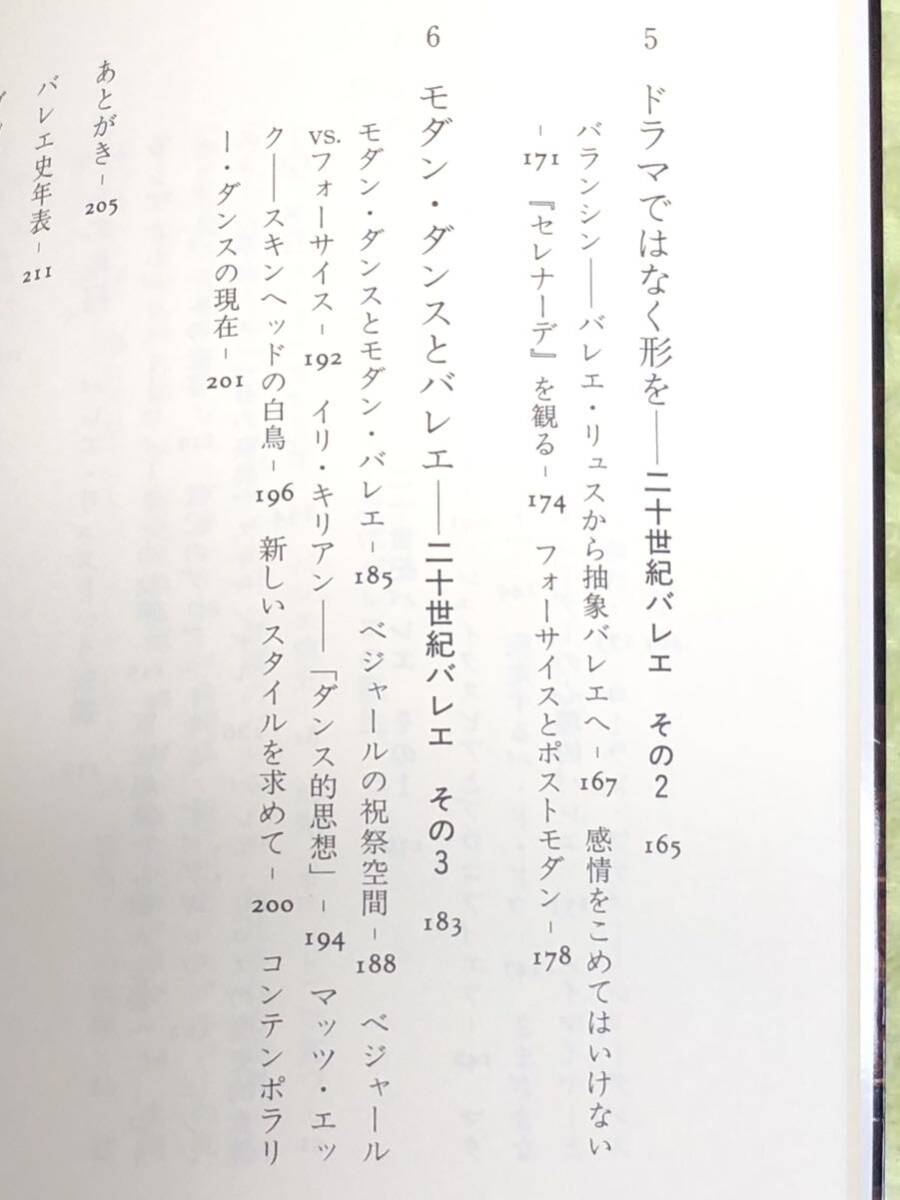 5 ドラマではなく形を――二十世紀バレエ その2 165
バランシン――バレエ・リュスから抽象バレエへ－167 感情をこめてはいけない
－171 『セレナーデ』を観る－174 フォーサイスとポストモダン－178
6 モダン・ダンスとバレエ――二十世紀バレエ その3 183
モダン・ダンスとモダン・バレエ－185 ベジャールの祝祭空間－188 ベジャール
vs.フォーサイス－192 イリ・キリアン――「ダンス的思想」－194 マッツ・エッ
ク――スキンヘッドの白鳥－196 新しいスタイルを求めて－200 コンテンポラリ
ー・ダンスの現在－201
あとがき－205
バレエ史年表－211